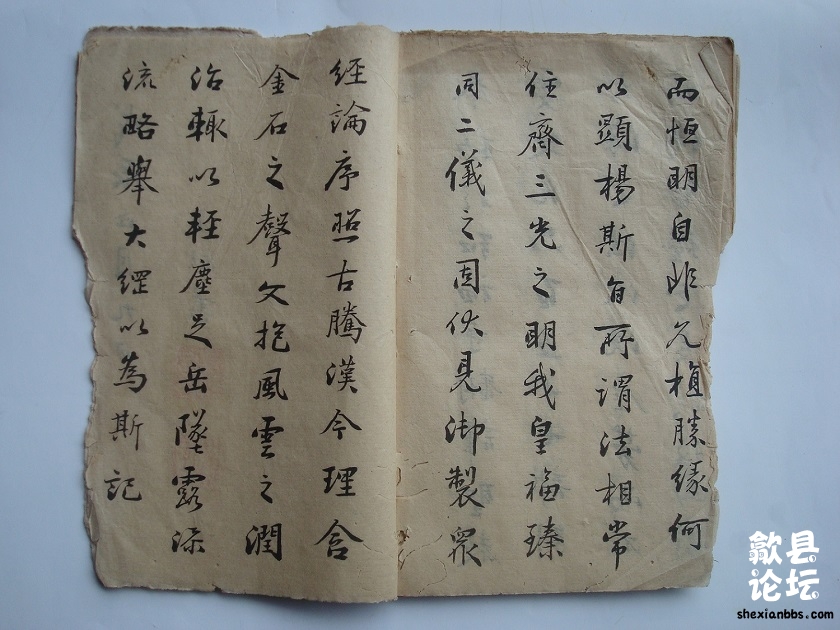 而恒明自非久植勝緣何
以顯楊斯旨所謂法相常
住齊三光之明我皇福臻
同二儀之固伏見御製眾
經論序照古騰漢今理含
金石之聲文抱風雲之潤
治輒以輕塵足岳墜露添
流略舉大綱以為斯記
歙县
论坛
shexianbbs.com